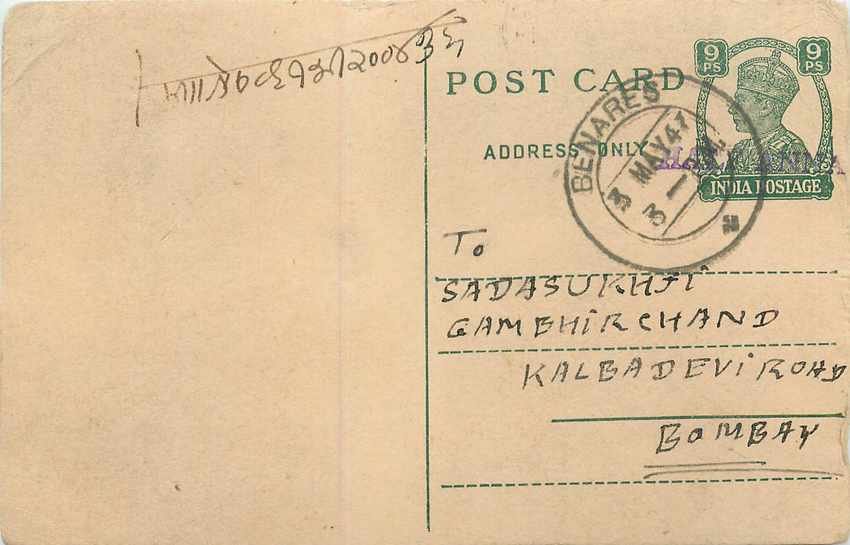 POST CARD
9 PS 9 PS
ADDRESS ONLY
HALF ANNA
INDIA POSTAGE
BENARES
3 MAY 47
3 - P.M.
To
SADASUKHJI
GAMBHIRCHAND
KALBADEVI ROAD
BOMBAY